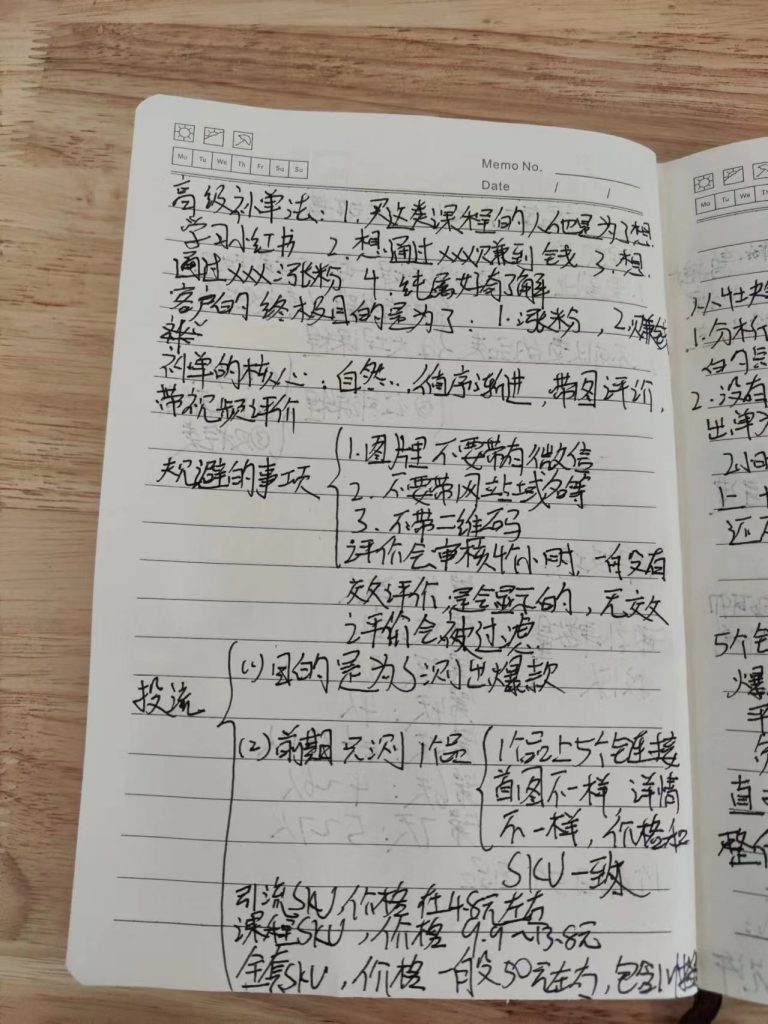 Mo Tu We Th Fr Sa Su
Memo No.
Date / /
高级补单法: 1. 买这类课程的人他是为了想
学习小红书 2. 想通过xxx赚到钱 3. 想
通过xxx涨粉 4. 纯属好奇了解
客户的终极目的是为了: 1. 涨粉, 2. 赚钱
补单的核心: 自然..., 循序渐进, 带图评价,
带视频评价
规避的事项
1. 图片里不要带有微信
2. 不要带网站域名等
3. 不带二维码
评价会审核4个小时, 一般没有
效评价, 是会显示的, 无效
评价会被过滤
投流
(1) 目的是为了测出爆款
(2) 前期只测1个品
1个品上5个链接
首图不一样 详情
不一样, 价格和
SKU一致
引流SKU, 价格在4.8元左右
课程SKU, 价格 9.9~13.8元
全套SKU, 价格一般50元左右, 包含
Mo Tu We Th
1. 分析
2. 没有
出单
5个
爆
平
直
整个